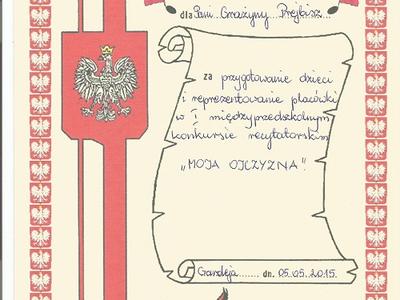 dla Pani Grażyny Prejbisz
za przygotowanie dzieci
i reprezentowanie placówki
w I międzyprzedszkolnym
konkursie recytatorskim
„MOJA OJCZYZNA”.
Gardeja........ dn. 05.05.2015.